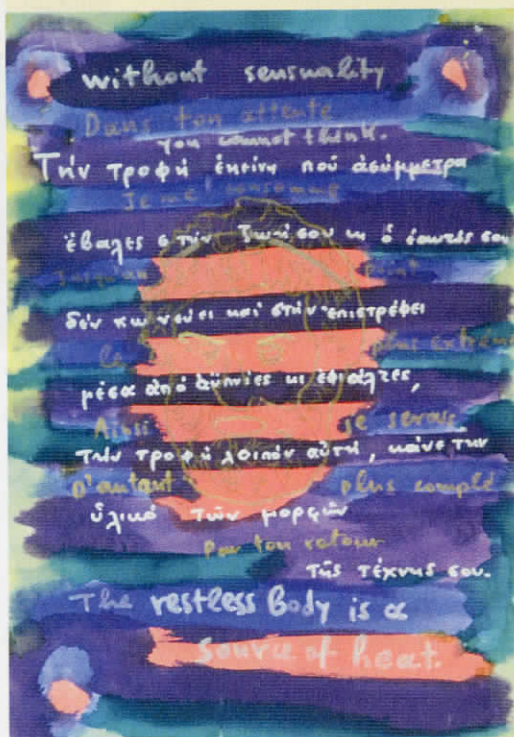 without sensuality
Dans ton attente
you cannot think.
Τὴν τροφὴ ἐκείνη ποὺ ἀσύμμετρα
Je me consomme
ἔβαλες στὴν ζωή σου κι ὁ ἑαυτός σου
Jusqu'au point
δὲν χωνεύει καὶ στὴν ἐπιστρέφει
le plus extrême
μέσα ἀπὸ ἀϋπνίες κι ἐφιάλτες,
Ainsi je serais
τὴν τροφὴ λοιπὸν αὐτή, κάνε την
D'autant plus comblé
ὑλικὸ τῶν μορφῶν
Par ton retour
τῆς τέχνης σου.
The restless Body is a
source of heat.